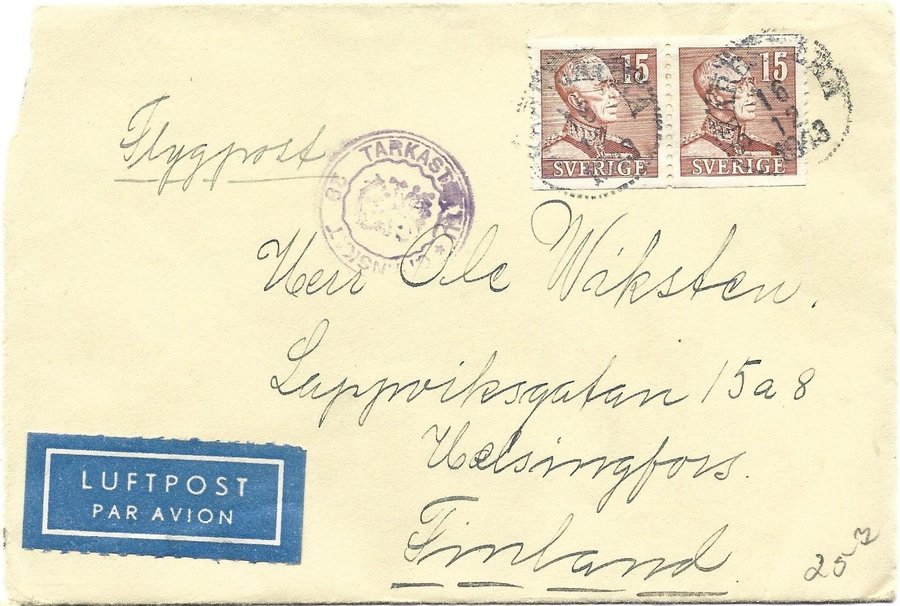 15
15
SVERIGE
SVERIGE
16
12
1943
Flygpost
TARKASTETTU * GRANSKAT 68
Herr Ole Wiksten.
Lappviksgatan 15 a 8
Helsingfors.
Finland
LUFTPOST
PAR AVION